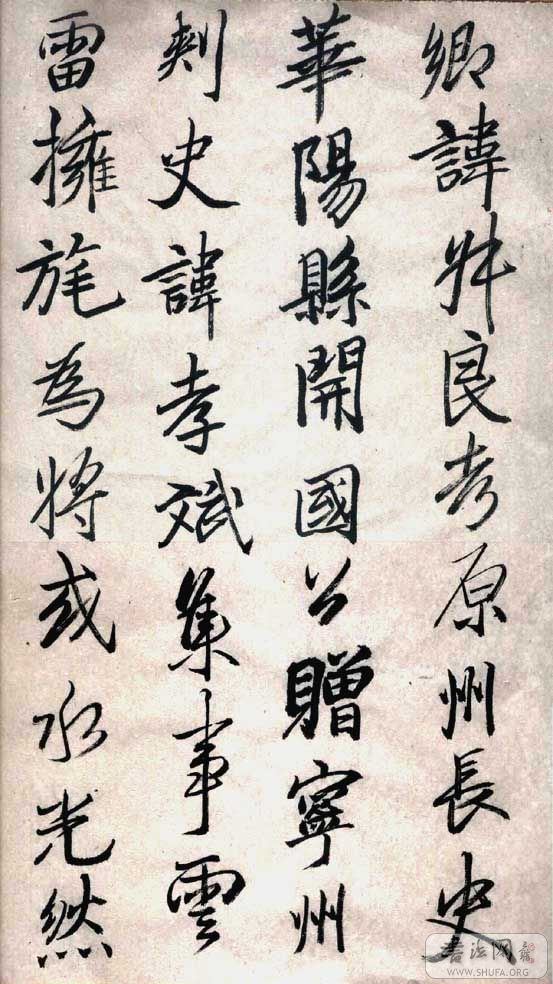 卿諱叔良考原州長史
華陽縣開國公贈寧州
刺史諱孝斌集事雲
雷擁旄為將或永光然
书法网
WWW.SHUFA.ORG